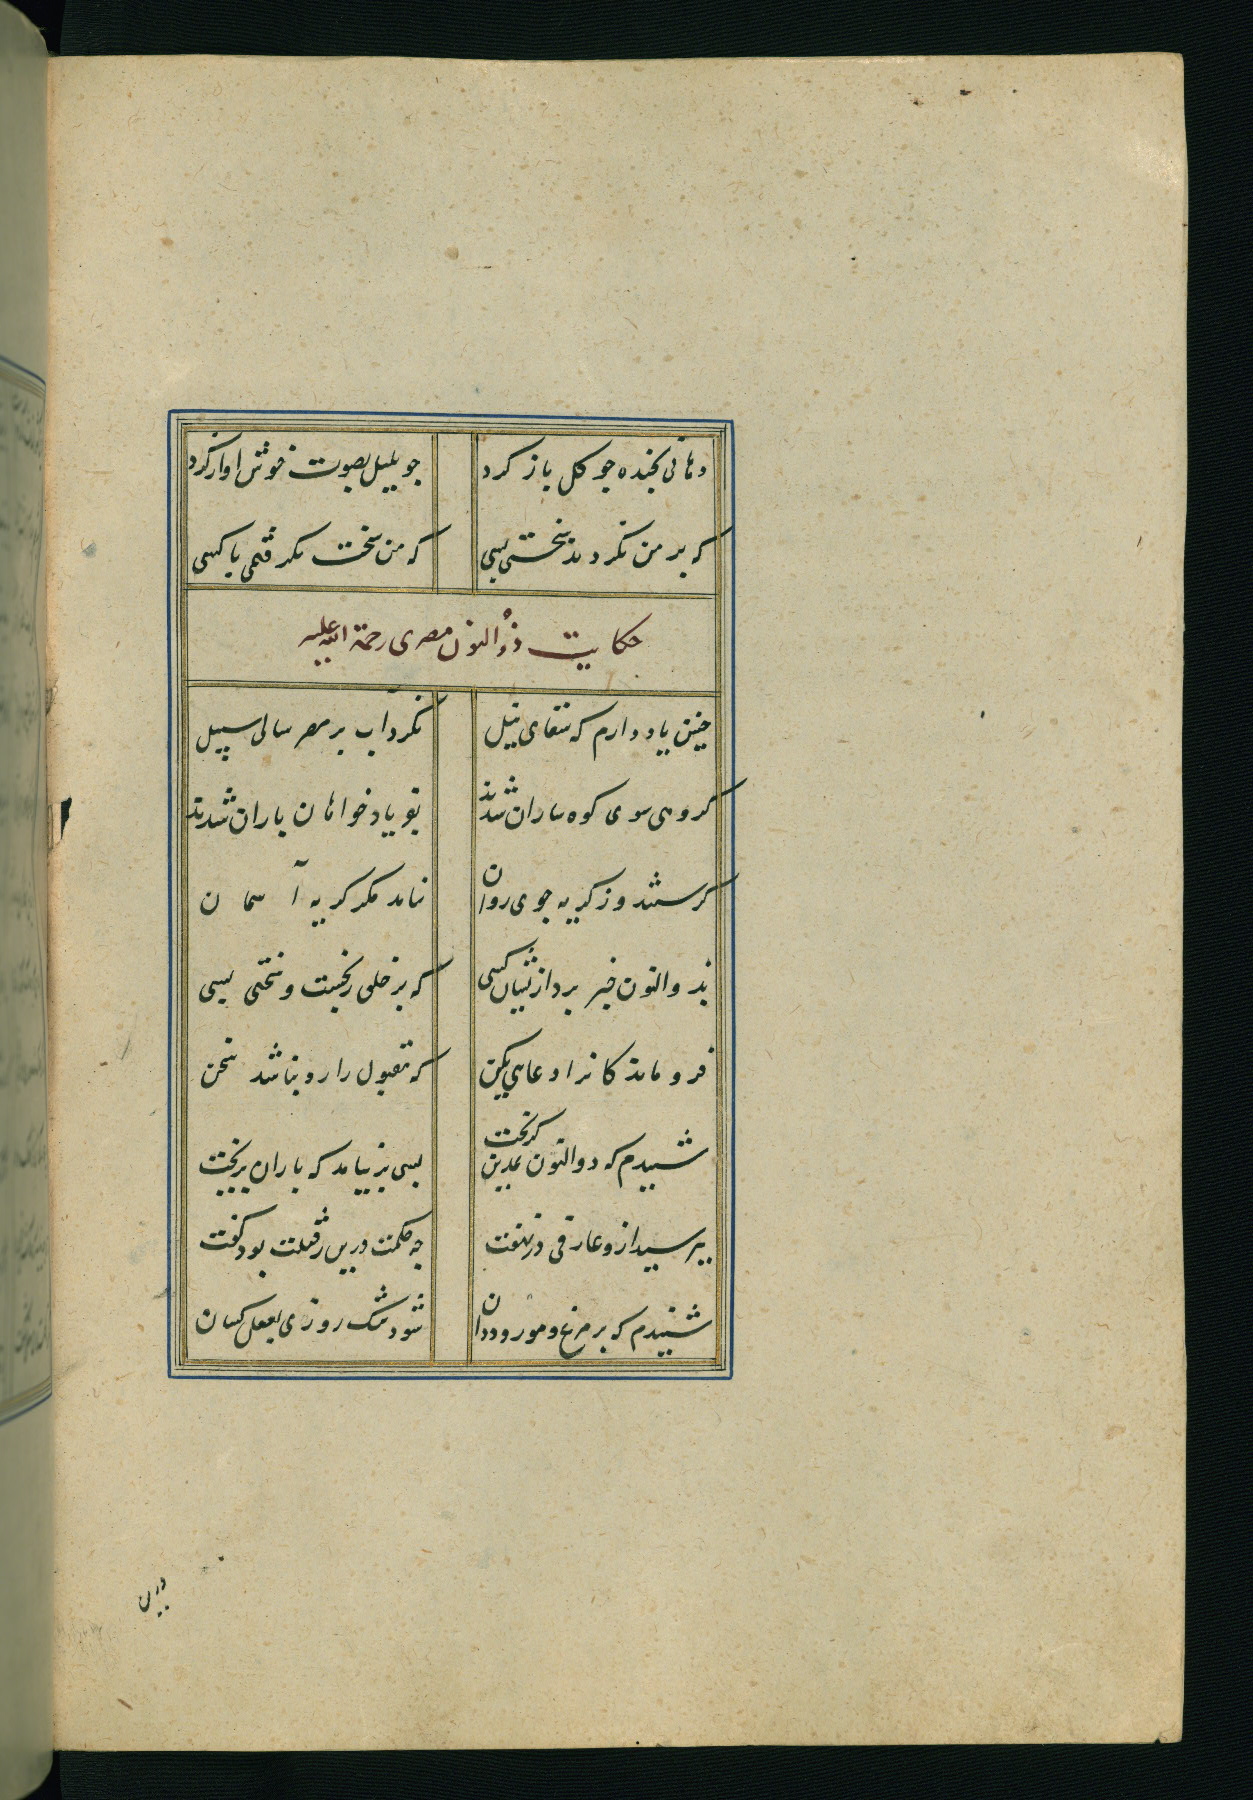 دهانی بخنده چو کل باز کرد چو بلبل بصوت خوش اواز کرد
که بر من نکردند سختی بسی که من سخت نکرفتمی با کسی
حکایت ذوالنون مصری رحمة الله علیه
چنین یاد دارم که سقای نیل نکرد آب بر مصر سالی سبیل
کروهی سوی کوه ساران شدند بفریاد خواهان باران شدند
کرستند وز کریه جوی روان نیامد مکر کریه آسمان
بذوالنون خبر برد ازیشان کسی که بر خلق رنجست و سختی بسی
فرو ماندکانرا دعایی بکن که مقبول را رد نباشد سخن
شنیدم که ذوالنون بمدین کریخت بسی بر نیامد که باران بریخت
بپرسید ازو عارفی در نهفت چه حکمت درین رفتنت بود کفت
شنیدم که بر مرغ و مور و ددان شود تنک روزی بفعل کسان
درین